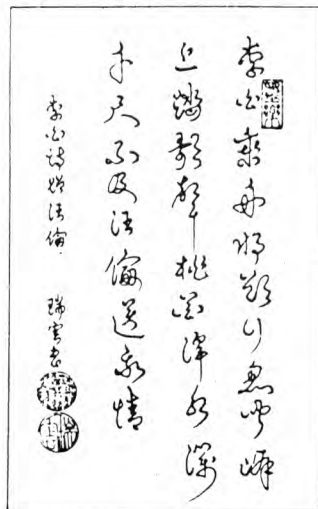 李白乘舟將欲行忽聞岸
上踏歌聲桃花潭水深
千尺不及汪倫送我情
李白詩贈汪倫 瑞書